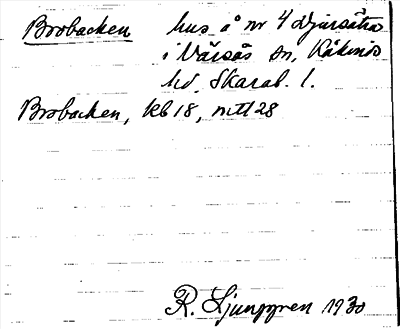 Brobacken hus å nr 4 Djursätra
i Värsås sn, Kåkinds
hd, Skarab. l.
Brobacken, kb 18, mtl 28
R. Ljunggren 1930